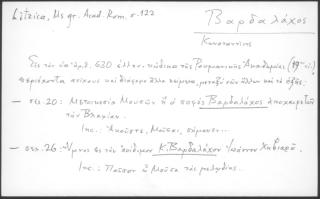 Litzica, Ms gr. Acad. Rom. σ. 122
Βαρδαλάχος
Κωνσταντῖνος
Εἰς τὸν ὑπ' ἀρ. 630 ἑλλην. κώδικα τῆς Ρουμανικῆς Ἀκαδημίας (19ου αἰ.)
περιέχονται στίχους καὶ διάφορα ἄλλα κείμενα, μεταξὺ τῶν ἄλλων καὶ τὰ ἑξῆς:
— σελ. 20: Μετοικεσία Μουσῶν ἢ ὁ σοφὸς Βαρδαλάχος ἀποχαιρετῶν
τὴν Βλαχίαν.
Inc.: Ἀκοῦστε, Μοῦσαι,
— σελ. 26: Ὕμνος εἰς τὸν ἀοίδιμον Κ. Βαρδαλάχον
Inc.: Ποῦσαι ὦ Μοῦσα τὰς μελῳδίας.